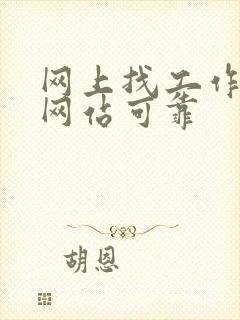 网上找工作
网站可靠
胡恩